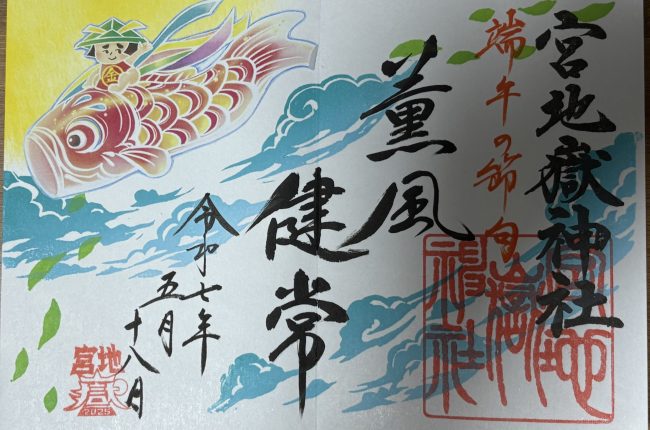 宮地嶽神社
端午の節句
薫風
健常
令和七年
五月
十八日
金
宮地嶽
神社
宮地
嶽
2025